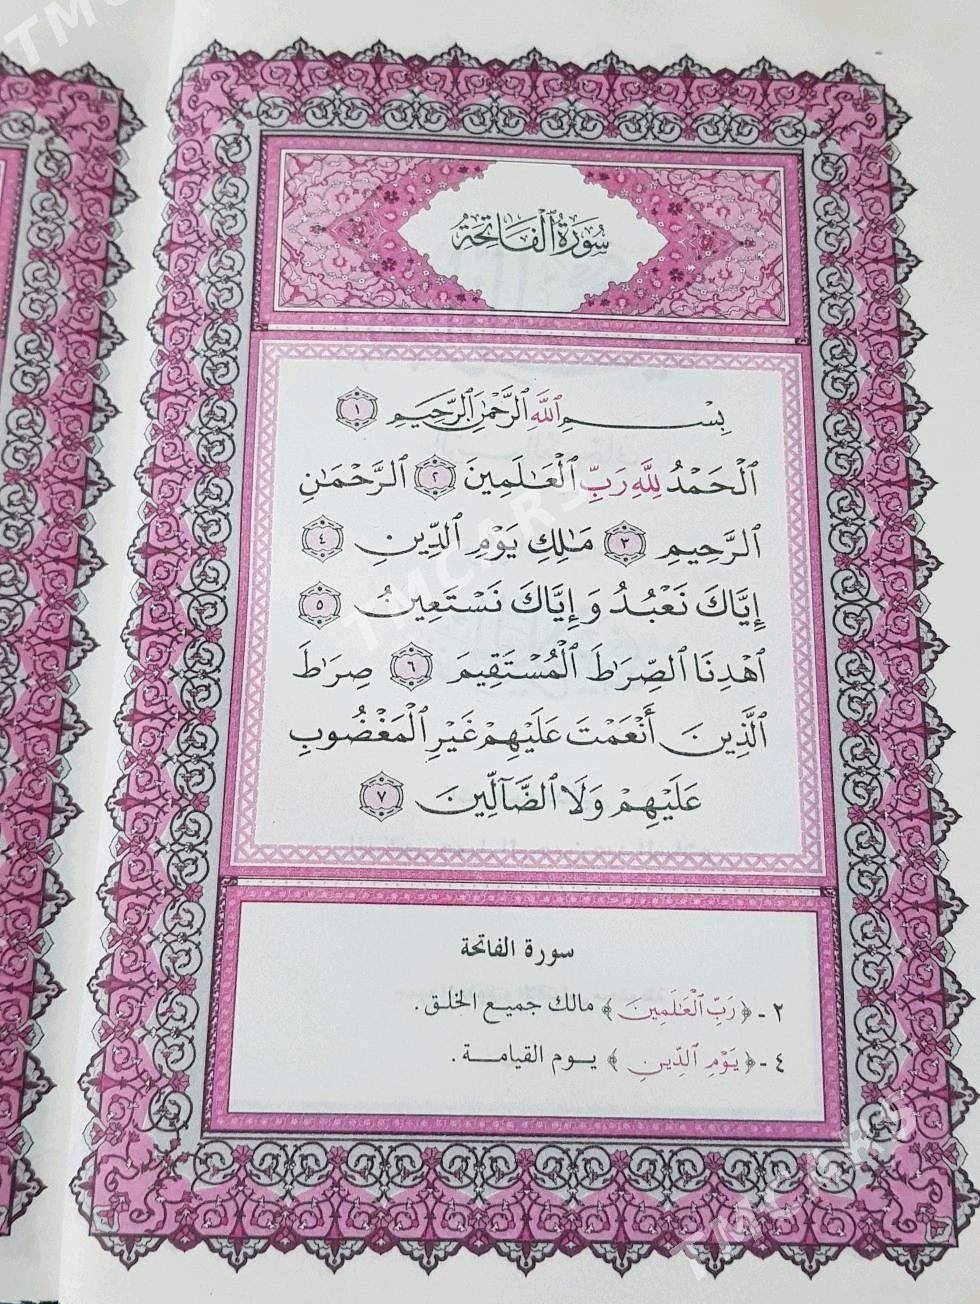 سُورَةُ ٱلْفَاتِحَةِ
بِسْمِ ٱللَّهِ ٱلرَّحْمَٰنِ ٱلرَّحِيمِ ١
ٱلْحَمْدُ لِلَّهِ رَبِّ ٱلْعَٰلَمِينَ ٢ ٱلرَّحْمَٰنِ
ٱلرَّحِيمِ ٣ مَٰلِكِ يَوْمِ ٱلدِّينِ ٤
إِيَّاكَ نَعْبُدُ وَإِيَّاكَ نَسْتَعِينُ ٥
ٱهْدِنَا ٱلصِّرَٰطَ ٱلْمُسْتَقِيمَ ٦ صِرَٰطَ
ٱلَّذِينَ أَنْعَمْتَ عَلَيْهِمْ غَيْرِ ٱلْمَغْضُوبِ
عَلَيْهِمْ وَلَا ٱلضَّآلِّينَ ٧
سورة الفاتحة
٢ - ﴿ رَبِّ ٱلْعَٰلَمِينَ ﴾ مالك جميع الخلق .
٤ - ﴿ يَوْمِ ٱلدِّينِ ﴾ يوم القيامة .
TMCARS
TMCARS